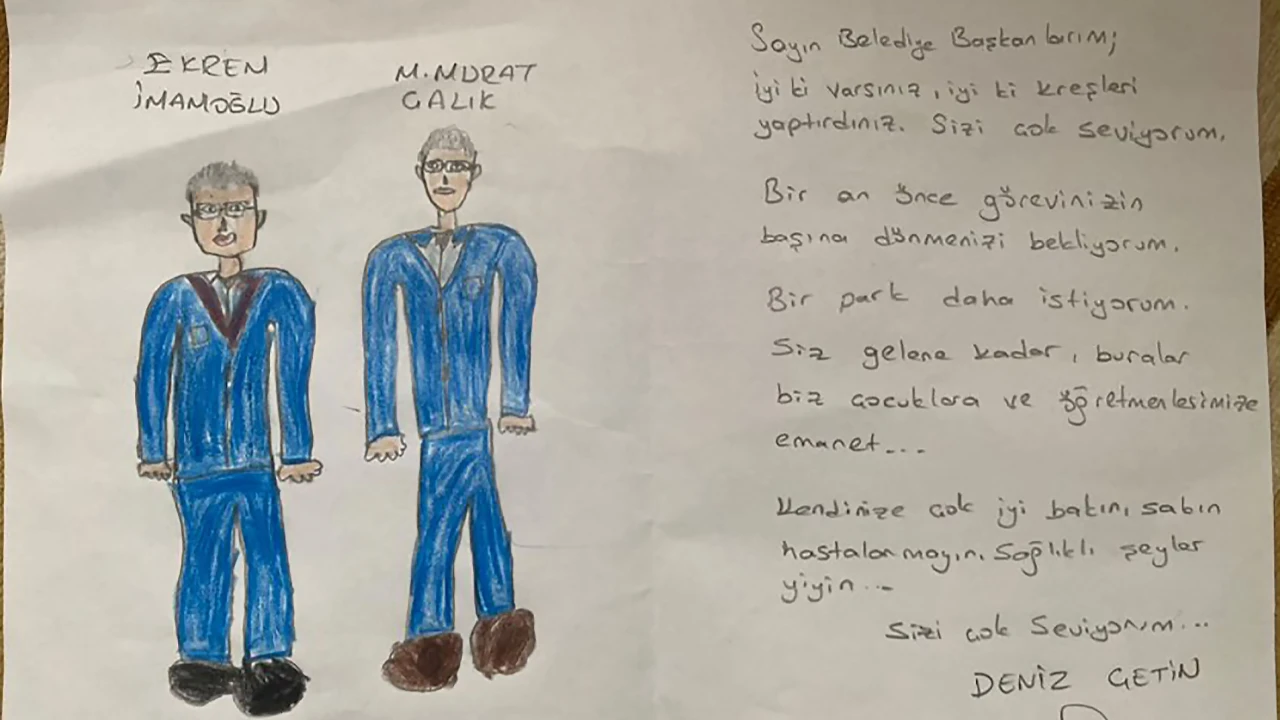 EKREM
İMAMOĞLU
M. MURAT
ÇALIK
Sayın Belediye Başkanlarım;
iyi ki varsınız, iyi ki kreşleri
yaptırdınız. Sizi çok seviyorum.
Bir an önce görevinizin
başına dönmenizi bekliyorum.
Bir park daha istiyorum.
Siz gelene kadar, buralar
biz çocuklara ve öğretmenlerimize
emanet...
Kendinize çok iyi bakın, sakın
hastalanmayın. Sağlıklı şeyler
yiyin...
Sizi çok Seviyorum...
DENİZ ÇETİN